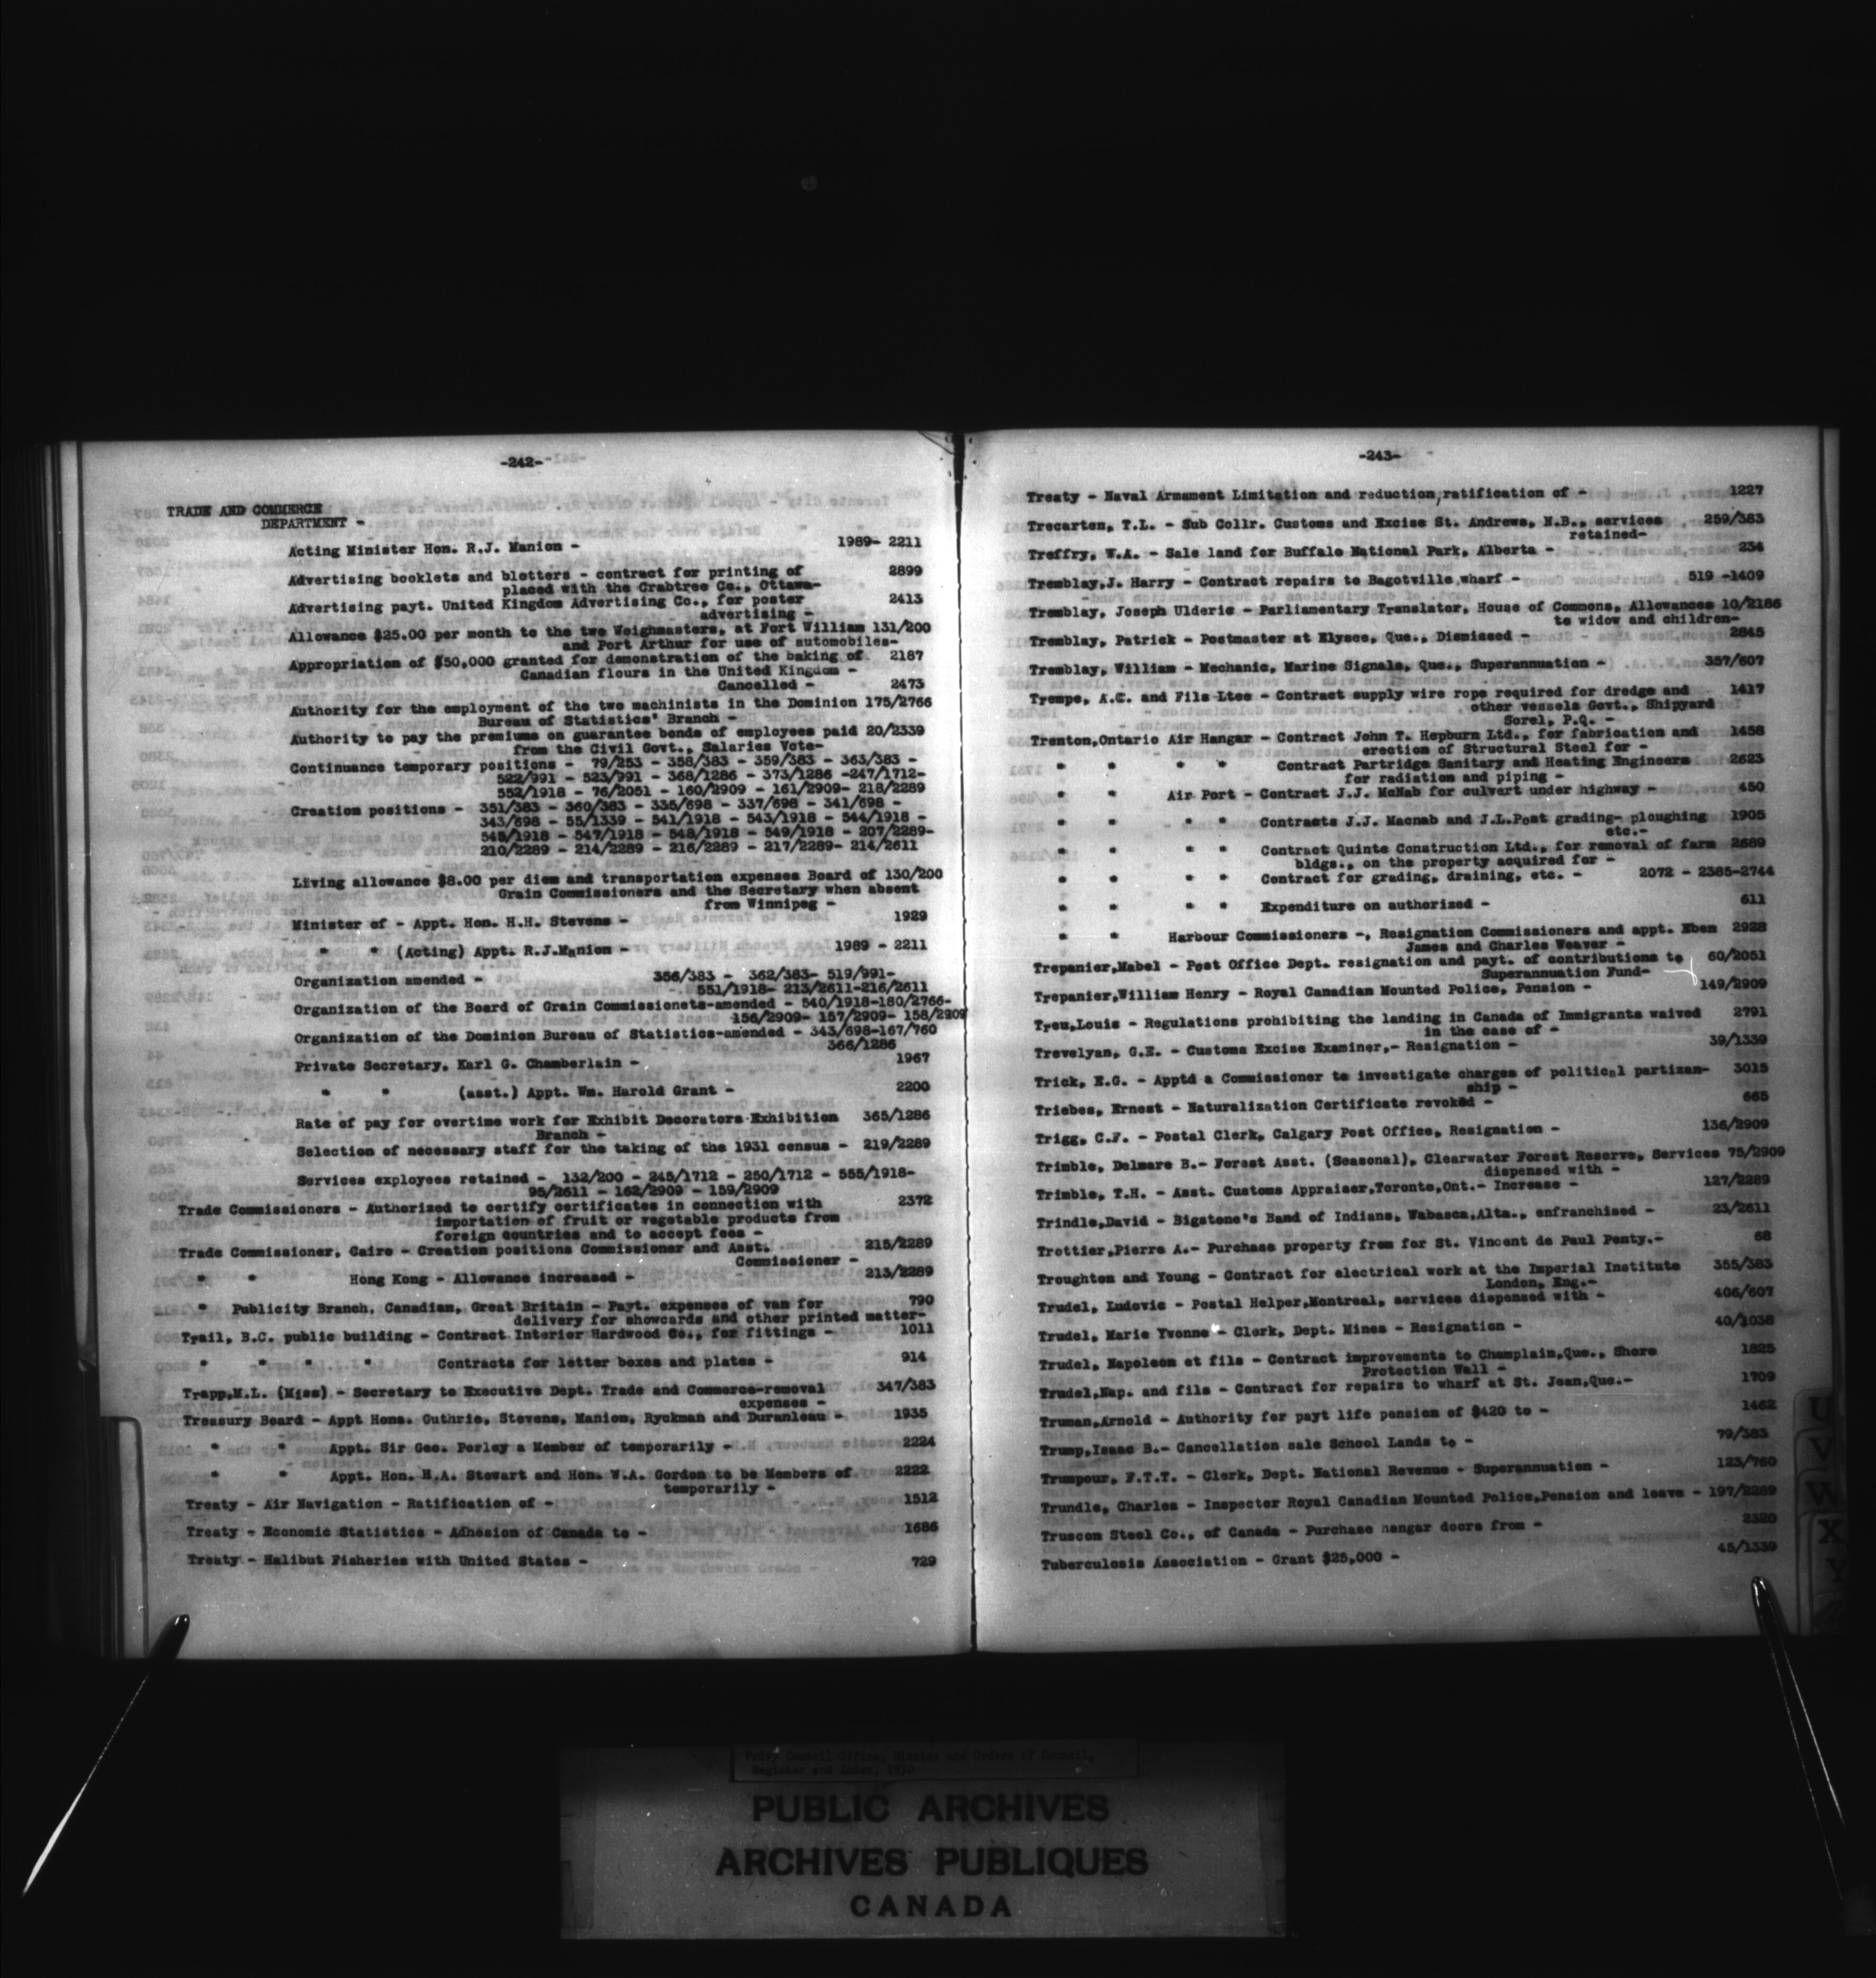 -242-
TRADE AND COMMERCE
DEPARTMENT -
Acting Minister Hon. R.J. Manion - 1989- 2211
Advertising booklets and blotters - contract for printing of 2899
placed with the Crabtree Co., Ottawa-
Advertising payt. United Kingdom Advertising Co., for poster 2413
advertising -
Allowance $25.00 per month to the two Weighmasters, at Fort William 131/200
and Port Arthur for use of automobiles-
Appropriation of $50,000 granted for demonstration of the baking of 2187
Canadian flours in the United Kingdom -
Cancelled - 2473
Authority for the employment of the two machinists in the Dominion 175/2766
Bureau of Statistics' Branch -
Authority to pay the premiums on guarantee bonds of employees paid 20/2339
from the Civil Govt., Salaries Vote-
Continuance temporary positions - 79/253 - 358/383 - 359/383 - 363/383 -
522/991 - 523/991 - 368/1286 - 373/1286 -247/1712-
552/1918 - 76/2051 - 160/2909 - 161/2909- 218/2289
Creation positions - 351/383 - 360/383 - 335/698 - 337/698 - 341/698 -
343/698 - 55/1339 - 541/1918 - 543/1918 - 544/1918 -
545/1918 - 547/1918 - 548/1918 - 549/1918 - 207/2289-
210/2289 - 214/2289 - 216/2289 - 217/2289- 214/2611
Living allowance $8.00 per diem and transportation expenses Board of 130/200
Grain Commissioners and the Secretary when absent
from Winnipeg -
Minister of - Appt. Hon. H.H. Stevens - 1929
" " (Acting) Appt. R.J.Manion - 1989 - 2211
Organization amended - 356/383 - 362/383- 519/991-
551/1918- 213/2611-216/2611
Organization of the Board of Grain Commissionets-amended - 540/1918-180/2766-
156/2909- 157/2909- 158/2909
Organization of the Dominion Bureau of Statistics-amended - 343/698-167/760
366/1286
Private Secretary, Karl G. Chamberlain - 1967
" " (asst.) Appt. Wm. Harold Grant - 2200
Rate of pay for overtime work for Exhibit Decorators Exhibition 365/1286
Branch -
Selection of necessary staff for the taking of the 1931 census - 219/2289
Services exployees retained - 132/200 - 245/1712 - 250/1712 - 555/1918-
95/2611 - 162/2909 - 159/2909
Trade Commissioners - Authorized to certify certificates in connection with 2372
importation of fruit or vegetable products from
foreign countries and to accept fees -
Trade Commissioner, Cairo - Creation positions Commissioner and Asst. 215/2289
Commissioner -
" " Hong Kong - Allowance increased - 213/2289
" Publicity Branch, Canadian, Great Britain - Payt. expenses of van for 790
delivery for showcards and other printed matter-
Trail, B.C. public building - Contract Interior Hardwood Co., for fittings - 1011
" " " " Contracts for letter boxes and plates - 914
Trapp,M.L. (Miss) - Secretary to Executive Dept. Trade and Commerce-removal 347/383
expenses -
Treasury Board - Appt Hons. Guthrie, Stevens, Manion, Ryckman and Duranleau - 1935
" " Appt. Sir Geo. Perley a Member of temporarily - 2224
" " Appt. Hon. H.A. Stewart and Hon. W.A. Gordon to be Members of 2222
temporarily -
Treaty - Air Navigation - Ratification of - 1512
Treaty - Economic Statistics - Adhesion of Canada to - 1686
Treaty - Halibut Fisheries with United States - 729
-243-
Treaty - Naval Armament Limitation and reduction,ratification of - 1227
Trecarten, T.L. - Sub Collr. Customs and Excise St. Andrews, N.B., services 259/383
retained-
Treffry, W.A. - Sale land for Buffalo National Park, Alberta - 234
Tremblay,J. Harry - Contract repairs to Bagotville wharf - 519 -1409
Tremblay, Joseph Ulderic - Parliamentary Translator, House of Commons, Allowances 10/2186
to widow and children-
Tremblay, Patrick - Postmaster at Elysee, Que., Dismissed - 2845
Tremblay, William - Mechanic, Marine Signals, Que., Superannuation - 357/607
Trempe, A.C. and Fils Ltee - Contract supply wire rope required for dredge and 1417
other vessels Govt., Shipyard
Sorel, P.Q. -
Trenton,Ontario Air Hangar - Contract John T. Hepburn Ltd., for fabrication and 1458
erection of Structural Steel for -
" " " " Contract Partridge Sanitary and Heating Engineers 2623
for radiation and piping -
" " Air Port - Contract J.J. McNab for culvert under highway - 450
" " " " Contracts J.J. Macnab and J.L.Post grading- ploughing 1905
etc.-
" " " " Contract Quinte Construction Ltd., for removal of farm 2689
bldgs., on the property acquired for -
" " " " Contract for grading, draining, etc. - 2072 - 2385-2744
" " " " Expenditure on authorized - 611
" " Harbour Commissioners -, Resignation Commissioners and appt. Eben 2928
James and Charles Weaver -
Trepanier,Mabel - Post Office Dept. resignation and payt. of contributions to 60/2051
Superannuation Fund-
Trepanier,William Henry - Royal Canadian Mounted Police, Pension - 149/2909
Treu,Louis - Regulations prohibiting the landing in Canada of Immigrants waived 2791
in the case of -
Trevelyan, G.E. - Customs Excise Examiner,- Resignation - 39/1339
Trick, E.G. - Apptd a Commissioner to investigate charges of political partizan- 3015
ship -
Triebes, Ernest - Naturalization Certificate revoked - 665
Trigg, C.F. - Postal Clerk, Calgary Post Office, Resignation - 136/2909
Trimble, Delmare B.- Forest Asst. (Seasonal), Clearwater Forest Reserve, Services 75/2909
dispensed with -
Trimble, T.H. - Asst. Customs Appraiser,Toronto,Ont.- Increase - 127/2289
Trindle,David - Bigstone's Band of Indians, Wabasca,Alta., enfranchised - 23/2611
Trottier,Pierre A.- Purchase property from for St. Vincent de Paul Penty.- 68
Troughton and Young - Contract for electrical work at the Imperial Institute 355/383
London, Eng.-
Trudel, Ludovic - Postal Helper,Montreal, services dispensed with - 406/607
Trudel, Marie Yvonne - Clerk, Dept. Mines - Resignation - 40/1038
Trudel, Napoleon et fils - Contract improvements to Champlain,Que., Shore 1825
Protection Wall -
Trudel,Nap. and fils - Contract for repairs to wharf at St. Jean,Que.- 1709
Truman,Arnold - Authority for payt life pension of $420 to - 1462
Trump,Isaac B.- Cancellation sale School Lands to - 79/383
Trumpour, F.T.T. - Clerk, Dept. National Revenue - Superannuation - 123/760
Trundle, Charles - Inspector Royal Canadian Mounted Police,Pension and leave - 197/2289
Truscon Steel Co., of Canada - Purchase hangar doors from - 2320
Tuberculosis Association - Grant $25,000 - 45/1339
U
V
W
X
Y
Privy Council Office, Minutes and Orders of Council,
Register and Index, 1930
PUBLIC ARCHIVES
ARCHIVES PUBLIQUES
CANADA